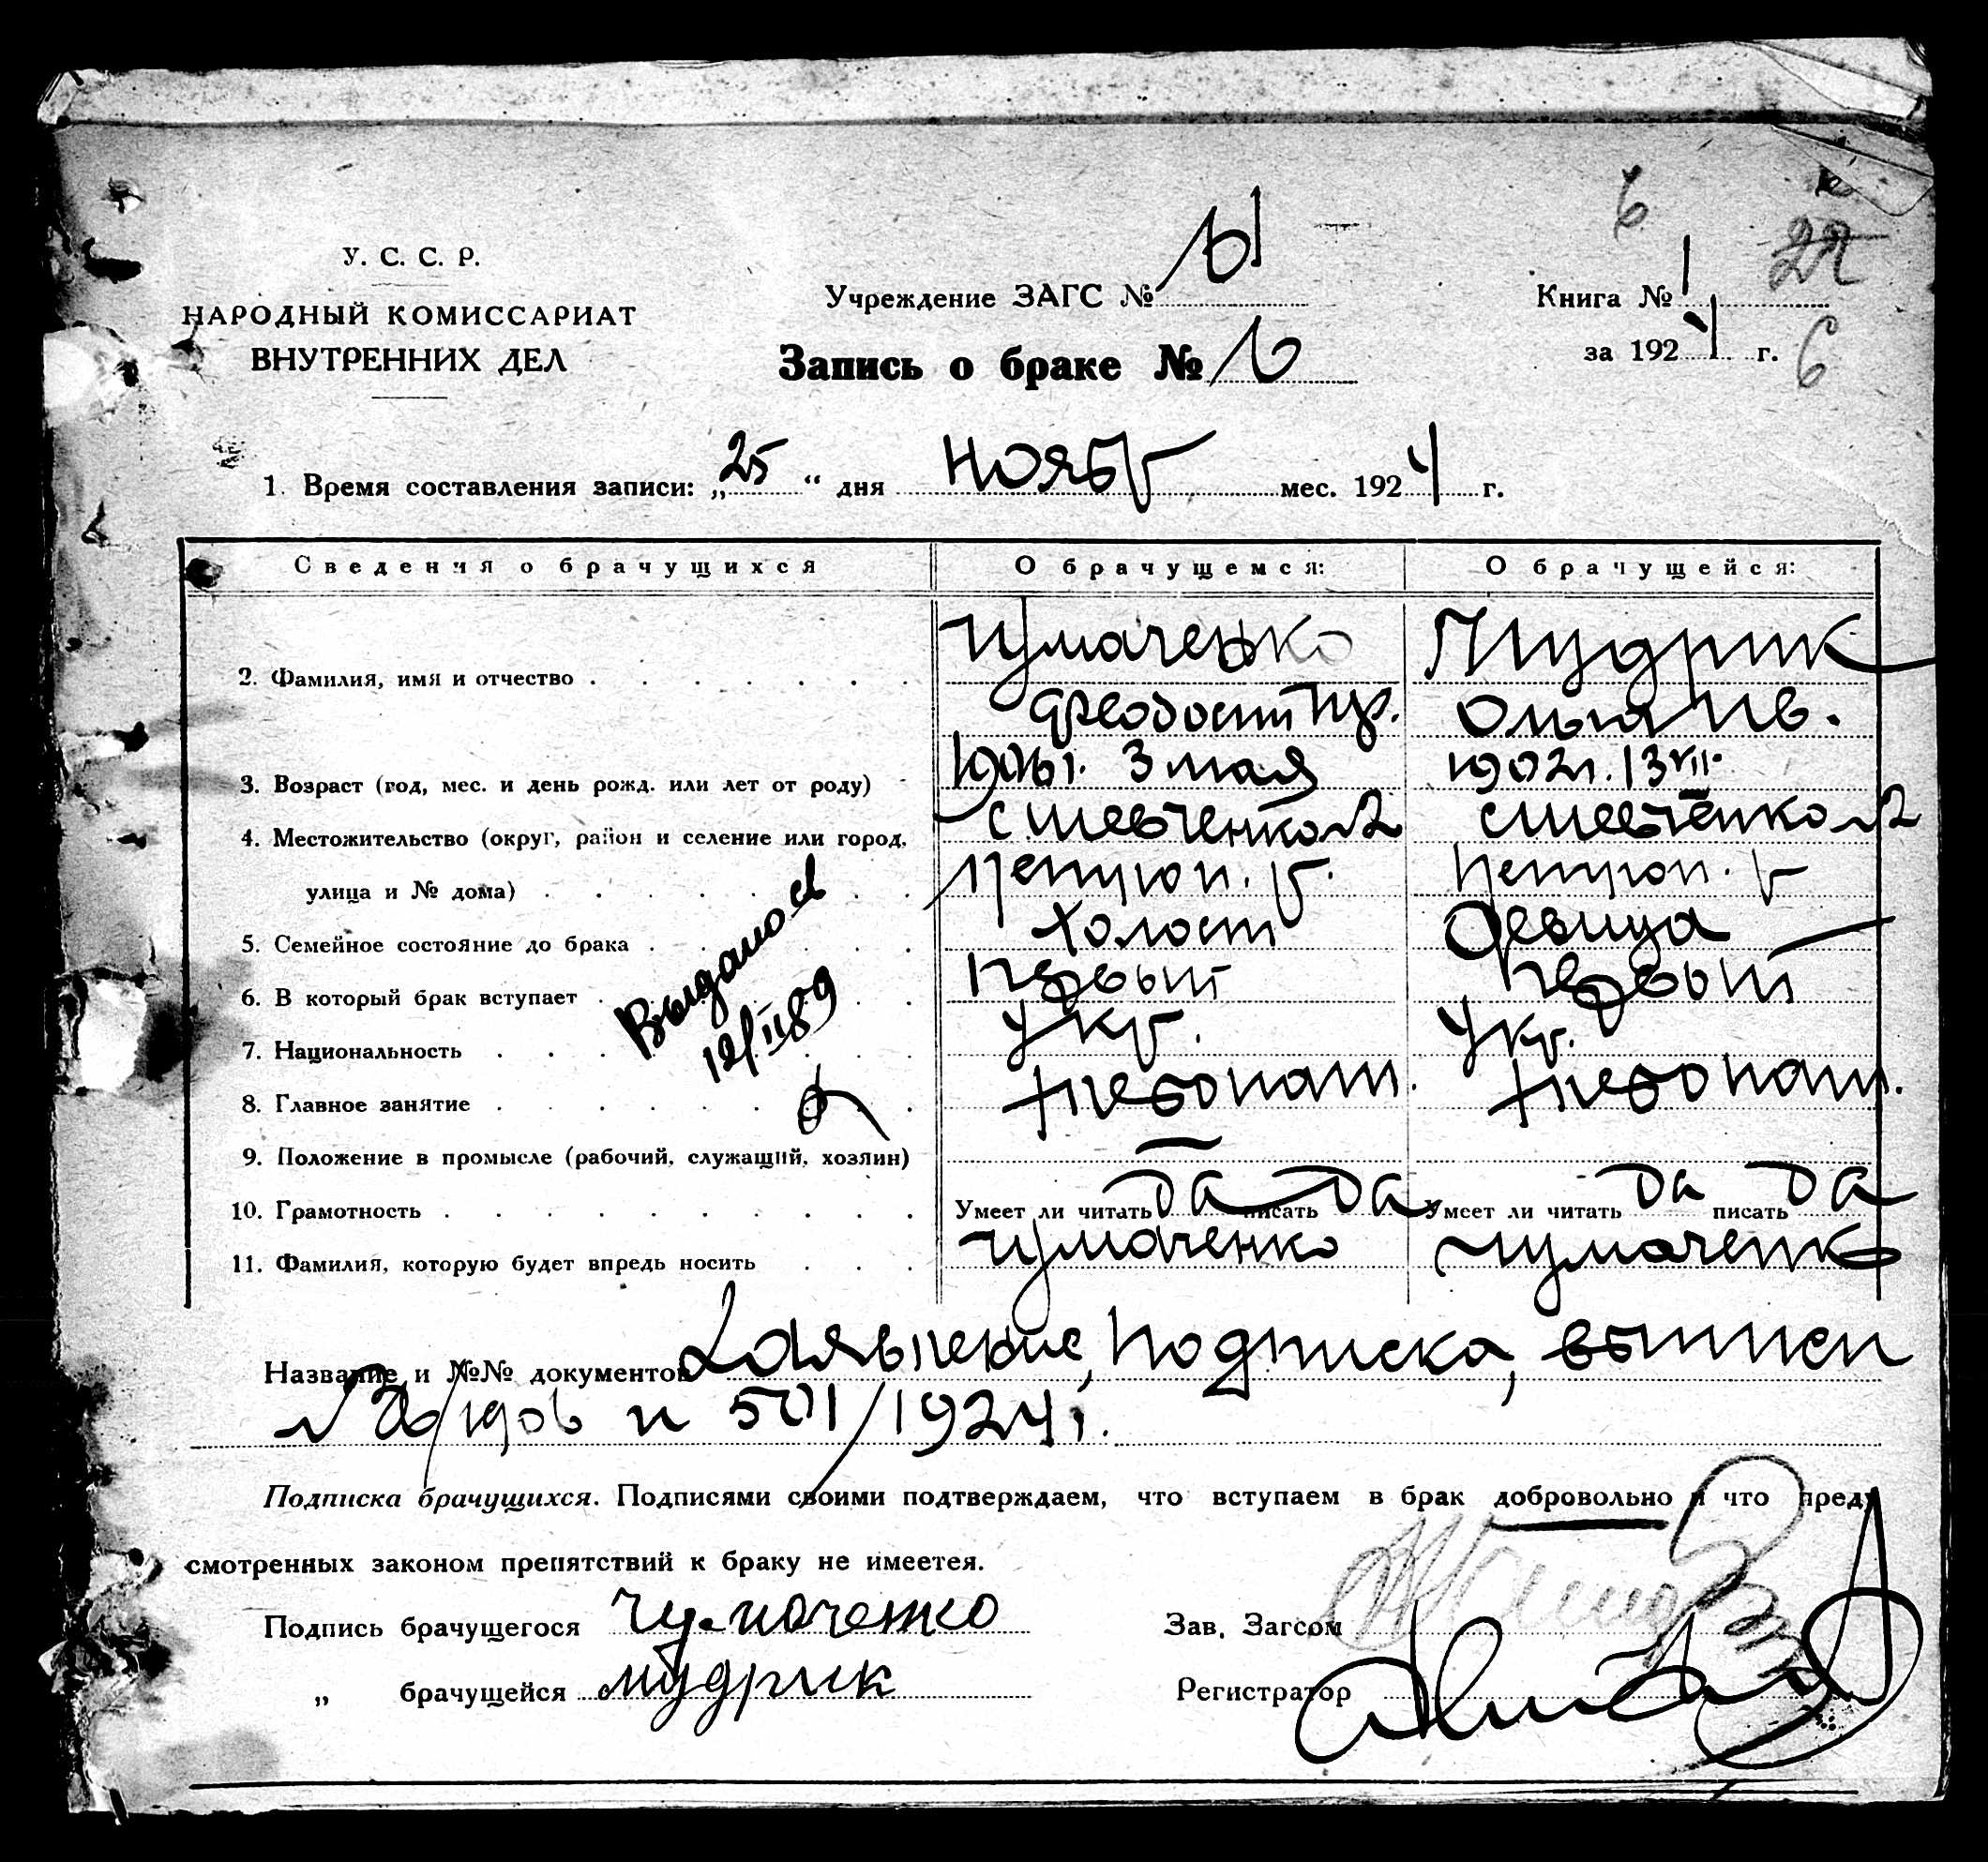 6
22
У. С. С. Р.
НАРОДНЫЙ КОМИССАРИАТ
ВНУТРЕННИХ ДЕЛ
Учреждение ЗАГС №
Книга № 1
за 1924 г.
6
Запись о браке № 6
1. Время составления записи: „25“ дня ноябр мес. 1924 г.
Сведения о брачущихся О брачущемся: О брачущейся:
2. Фамилия, имя и отчество Чумаченко Мудрик
Феодосий Ольга Ив.
3. Возраст (год, мес. и день рожд. или лет от роду) 1906 г. 3 мая 1902 г. 13 VII.
4. Местожительство (округ, район и селение или город, с Шевченко с Шевченко
улица и № дома) Петроп. р. Петроп. р
5. Семейное состояние до брака холост девица
6. В который брак вступает первый первый
7. Национальность Укр. Укр.
8. Главное занятие хлебопаш. хлебопаш.
9. Положение в промысле (рабочий, служащий, хозяин) —
10. Грамотность Умеет ли читать да писать да Умеет ли читать да писать да
11. Фамилия, которую будет впредь носить Чумаченко Чумаченко
Выдано св
12/II 89
Название и №№ документов Заявление, подписка, выписи
/1906 и 501/1924 г.
Подписка брачущихся. Подписями своими подтверждаем, что вступаем в брак добровольно и что преду
смотренных законом препятствий к браку не имеется.
Подпись брачущегося Чумаченко Зав. Загсом
„ брачущейся Мудрик Регистратор